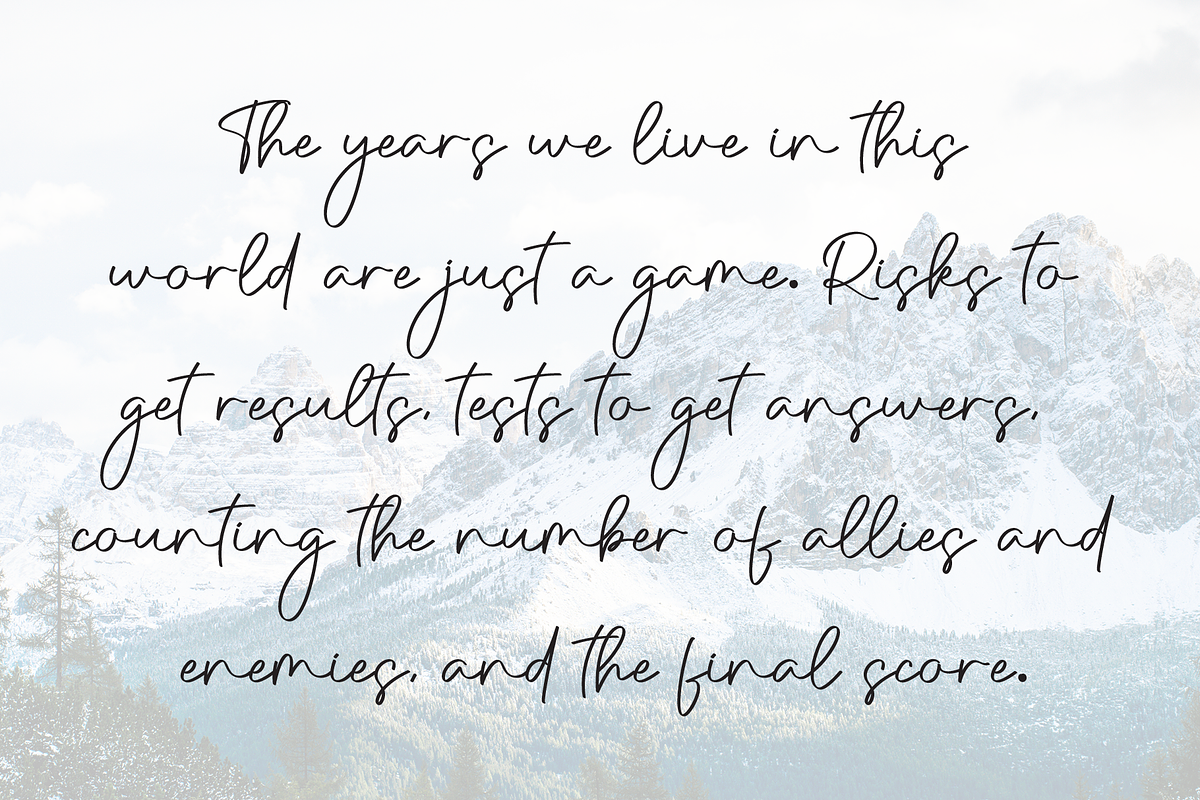 The years we live in this
world are just a game. Risks to
get results, tests to get answers,
counting the number of allies and
enemies, and the final score.